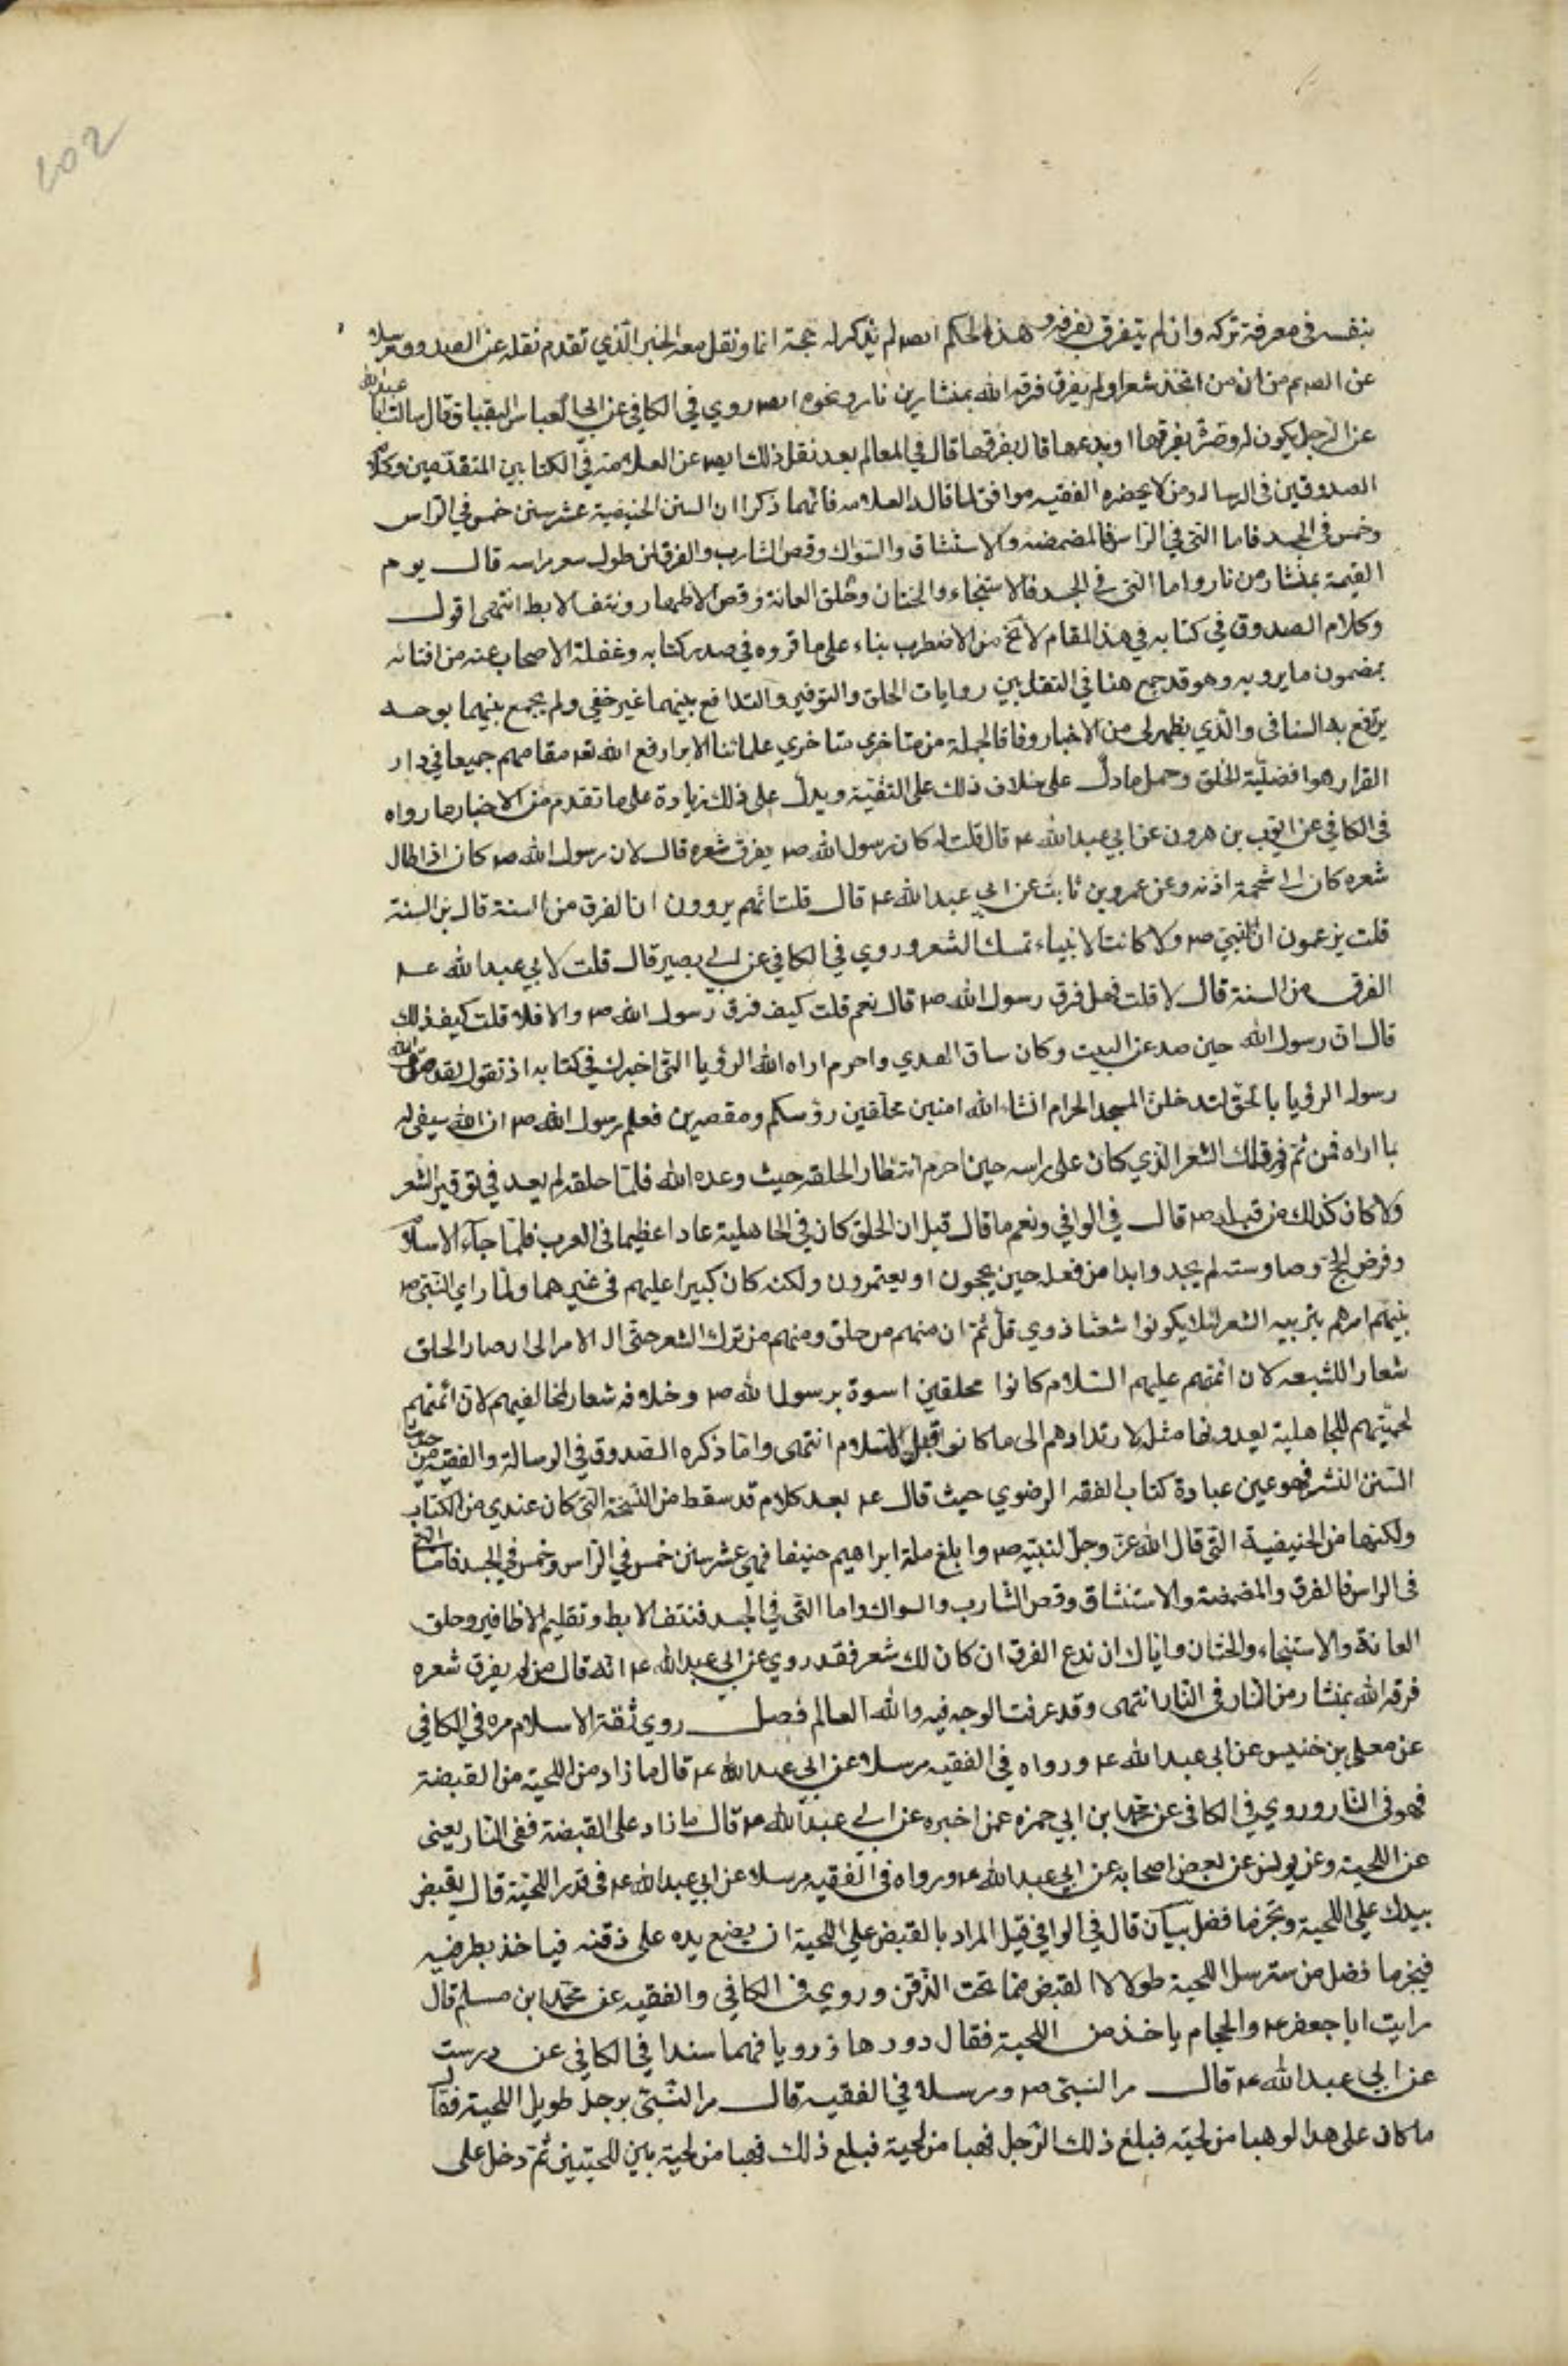 بنفسه في معرفة تركه وان لم يتفرق بفرقه وهذا الحكم ايضا لم يذكر له حجة انما ونقل معه الخبر الذي تقدم نقله عن الصدوق مرسلا
عن الصم من ان من اتخذ شعرا ولم يفرق فرقه الله بمنشار من نار ونحوه ايضا روي في الكافي عن ابي العباس البقباق قال سالت ابا عبدالله
عن الرجل يكون له وفرة يفرقها او يدعها قال يفرقها قال في المعالم بعد نقل ذلك ايضا عن العلامة في الكتابين المتقدمين وكلام
الصدوقين في الرسالة ومن لا يحضره الفقيه موافق لما قاله العلامه فانهما ذكرا ان السنن الحنيفية عشر سنن خمس في الراس
وخمس في الجسد فاما التي في الراس فالمضمضه والاستنشاق والسواك وقص الشارب والفرق لمن طول شعر راسه قال يوم
القيمة بمنشار من نار واما التي في الجسد فالاستنجاء والختان وحلق العانة وقص الاظفار ونتف الابط انتهى اقول
وكلام الصدوق في كتابه في هذا المقام لا يخ من الاضطرب بناء على ما قروه في صدر كتابه وغفلة الاصحاب عنه من افتائه
بمضمون ما يرويه وهو قد جمع هنا في النقل بين روايات الحلق والتوفير والتدافع بينهما غير خفي ولم يجمع بينهما بوجه
يرتفع به التنافى والذي يظهر لي من الاخبار وفاقا لجملة من متاخري متاخري علمائنا الابرار رفع الله تعه مقامهم جميعا في دار
القرار هو افضلية الحلق وحمل ما دل على خلاف ذلك على التقية ويدل على ذلك زيادة على ما تقدم من الاخبار ما رواه
في الكافي عن ايوب بن هرون عن ابي عبدالله ع قال قلت له كان رسول الله ص يفرق شعره قال لا ان رسول الله ص كان اذا طال
شعره كان الى شحمة اذنه وعن عمرو بن ثابت عن ابي عبدالله ع قال قلت انهم يروون ان الفرق من السنة قال من السنة
قلت يزعمون ان النبي ص ولا كانت الانبياء تمسك الشعر وروي في الكافي عن ابي بصير قال قلت لابي عبدالله ع
الفرق من السنة قال لا قلت فهل فرق رسول الله ص قال نعم قلت كيف فرق رسول الله ص والا فلا قلت كيف ذلك
قال ان رسول الله حين صد عن البيت وكان ساق الهدي واحرم اراه الله الرؤيا التي اخبرك في كتابه اذ تقول لقد صدق الله
رسوله الرؤيا بالحق لتدخلن المسجد الحرام انشاء الله امنين محلقين رؤسكم ومقصرين فعلم رسول الله ص ان الله سيفي له
بما اراه فمن ثم وفر ذلك الشعر الذي كان على راسه حين احرم انتظار الحلقه حيث وعده الله فلما حلقه لم يعد في توقير الشعر
ولا كان كذلك من قبله ص قال في الوافي ونعم ما قال قيل ان الحلق كان في الجاهلية عارا عظيما في العرب فلما جاء الاسلام
وفرض الحج وصاروا سنة لم يجدوا بدا من فعله حين يحجون او يعتمرون ولكنه كان كبيرا عليهم في غيرهما ولما راي النبي ص
بينهم امرهم بتربيه الشعر لئلا يكونوا شعثا ذوي قمل ثم ان منهم من حلق ومنهم من ترك الشعر حتى ال الامر الى ان صار الحلق
شعارا للشيعه لان ائمتهم عليهم السلام كانوا محلقين اسوة برسول الله ص وخلافه شعار لمخالفيهم لان ائمتهم
لحميتهم للجاهلية يعدونها مثله لارتدادهم الى ما كانوا قبل الاسلام انتهى واما ذكره الصدوق في الرسالة والفقيه من حديث
السنن العشر فهو عين عبارة كتاب الفقه الرضوي حيث قال ع بعد كلام قد سقط من النسخة التي كان عندي من الكتاب
ولكنها من الحنيفية التي قال الله عز وجل لنبيه ص واتبع ملة ابراهيم حنيفا فهي عشر سنن خمس في الراس وخمس في الجسد فاما التي
في الراس فالفرق والمضمضة والاستنشاق وقص الشارب والسواك واما التي في الجسد فنتف الابط وتقليم الاظافير وحلق
العانة والاستنجاء والختان واياك ان تدع الفرق ان كان لك شعر فقد روي عن ابي عبدالله ع انه قال من لم يفرق شعره
فرقه الله بمنشار من النار في النار انتهى وقد عرفت الوجه فيه والله العالم فصل روي ثقة الاسلام مره في الكافي
عن معلى بن خنيس عن ابي عبدالله ع ورواه في الفقيه مرسلا عن ابي عبدالله ع قال ما زاد من اللحية من القبضة
فهو في النار وروي في الكافي عن محمد ابن ابي حمزه عمن اخبره عن ابي عبدالله ع قال ما زاد على القبضة ففي النار يعني
عن اللحية وعن يونس عن بعض اصحابه عن ابي عبدالله ع ورواه في الفقيه مرسلا عن ابي عبدالله ع في قدر اللحية قال يقبض
بيدك على اللحية وتجز ما فضل بيان قال في الوافي قيل المراد بالقبض على اللحية ان يضع يده على ذقنه فياخذ بطرفيه
فيجز ما فضل من مسترسل اللحية طولا لا القبض مما تحت الذقن وروي في الكافي والفقيه عن محمد ابن مسلم قال
رايت ابا جعفر ع والحجام ياخذ من اللحية فقال دورها ورويا فهما سندا في الكافي عن درست
عن ابي عبدالله ع قال مر النبي ص ومرسلا في الفقيه قال مر النبي برجل طويل اللحية فقال
ما كان على هذا لو هيا من لحيته فبلغ ذلك الرجل فهيا من لحية فبلغ ذلك فهيا من لحية بين اللحيتين ثم دخل على